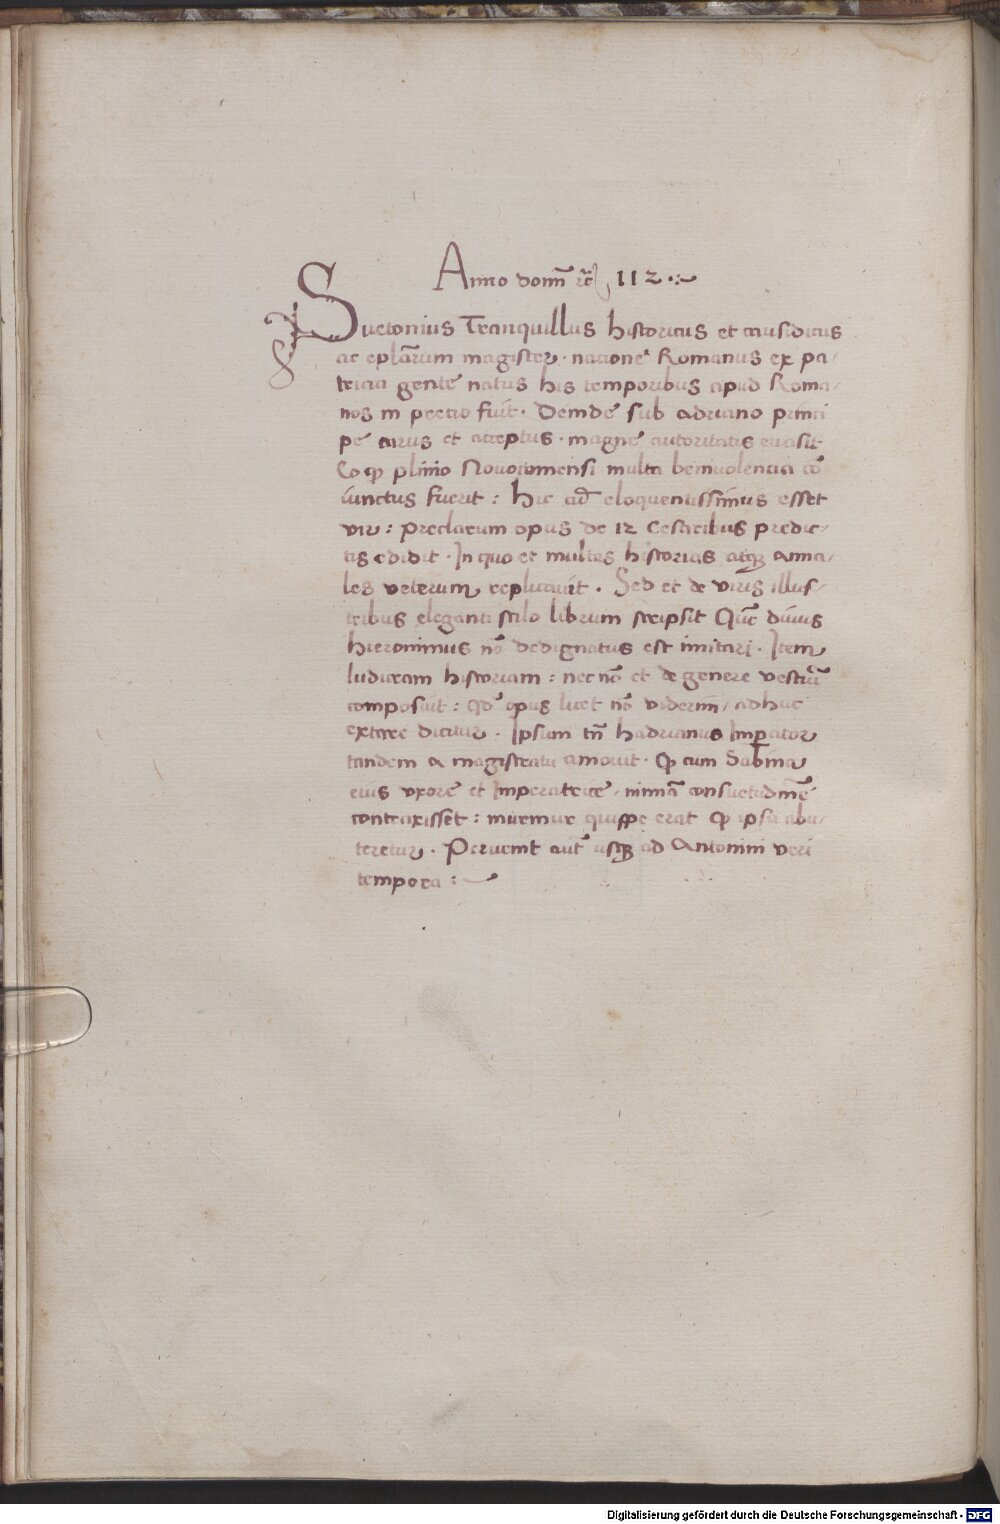 Anno domī rc̄ 112
Suetonius Tranquillus historicus et causidicus
ac eplārum magister · natione Romanus ex pa/
tricia gente natus his temporibus apud Roma/
nos in precio fuit · Deinde sub adriano princi
pe carus et acceptus · magne autoritatis euasit
Eo qp plinio Nouocomensi multa beniuolencia cō
iunctus fuerit : Hic cū eloquentissimus esset
vir : preclarum opus de 12 Cesaribus predic/
tis edidit · In quo et multas historias atqz Anna/
les veterum replicauit · Sed et de viris illus/
tribus eleganti stilo librum scripsit Quē diuus
hieronimus nō dedignatus est imitari · Item
ludicram historiam : nec nō et de genere vestiū
composuit : qd̄ opus licet nō viderim / adhuc
extare dicitur · Ipsum tn̄ hadrianus Imperator
tandem a magistratu amouit · qp cum Sabina
eius vxore et Imperatrice / nimiā consuetudinē
contraxisset : murmur quippe erat qp ipsa abu/
teretur · Peruenit aut̄ usqz ad Antonini veri
tempora :
Digitalisierung gefördert durch die Deutsche Forschungsgemeinschaft - DFG